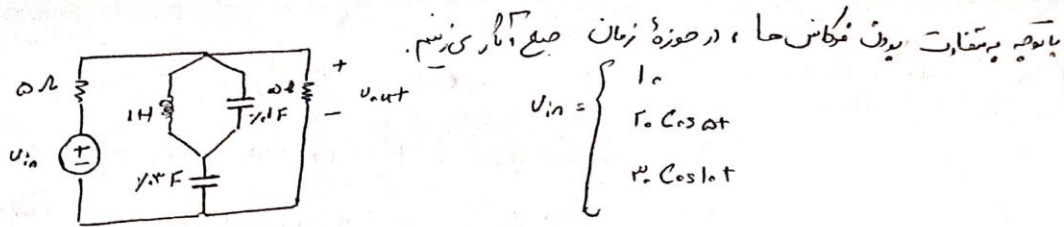 با توجه به متفاوت بودن فرکانس ها ، در حوزهٔ زمان جمع آثار می زنیم.
۵ Ω
+
۱H
٪۱F
۵Ω
Vout
-
Vin
+
-
٪۳F
Vin =
۱۰
۲۰ Cos ۵t
۳۰ Cos ۱۰t